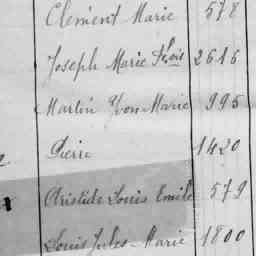 Clément Marie 578
Joseph Marie Fçois 2616
Martin Yvon-Marie 995
Pierre 1420
Aristide Louis Emile 579
Louis Jules-Marie 1800